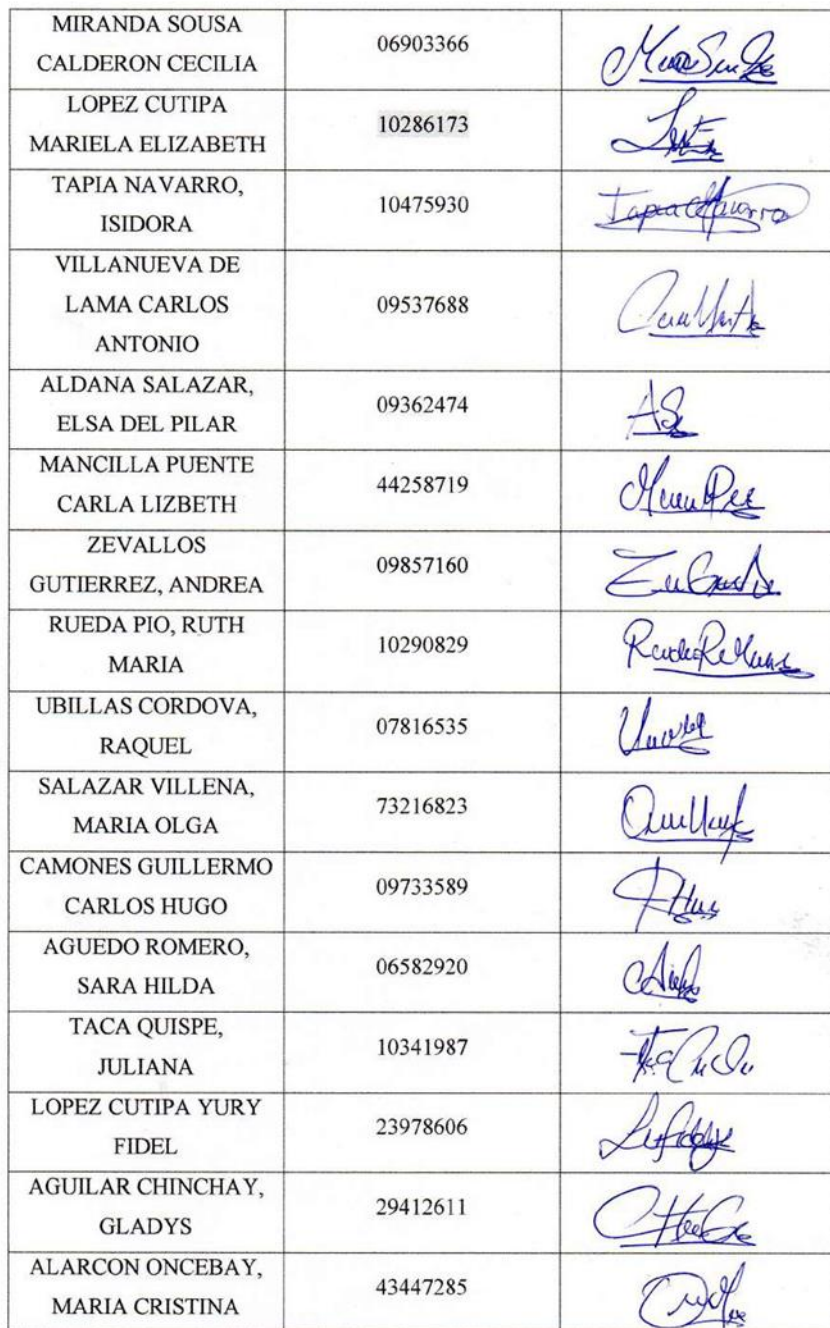 MIRANDA SOUSA
CALDERON CECILIA
06903366
LOPEZ CUTIPA
MARIELA ELIZABETH
10286173
TAPIA NAVARRO,
ISIDORA
10475930
Tapia Navarro
VILLANUEVA DE
LAMA CARLOS
ANTONIO
09537688
ALDANA SALAZAR,
ELSA DEL PILAR
09362474
MANCILLA PUENTE
CARLA LIZBETH
44258719
ZEVALLOS
GUTIERREZ, ANDREA
09857160
RUEDA PIO, RUTH
MARIA
10290829
UBILLAS CORDOVA,
RAQUEL
07816535
SALAZAR VILLENA,
MARIA OLGA
73216823
CAMONES GUILLERMO
CARLOS HUGO
09733589
AGUEDO ROMERO,
SARA HILDA
06582920
TACA QUISPE,
JULIANA
10341987
LOPEZ CUTIPA YURY
FIDEL
23978606
AGUILAR CHINCHAY,
GLADYS
29412611
ALARCON ONCEBAY,
MARIA CRISTINA
43447285